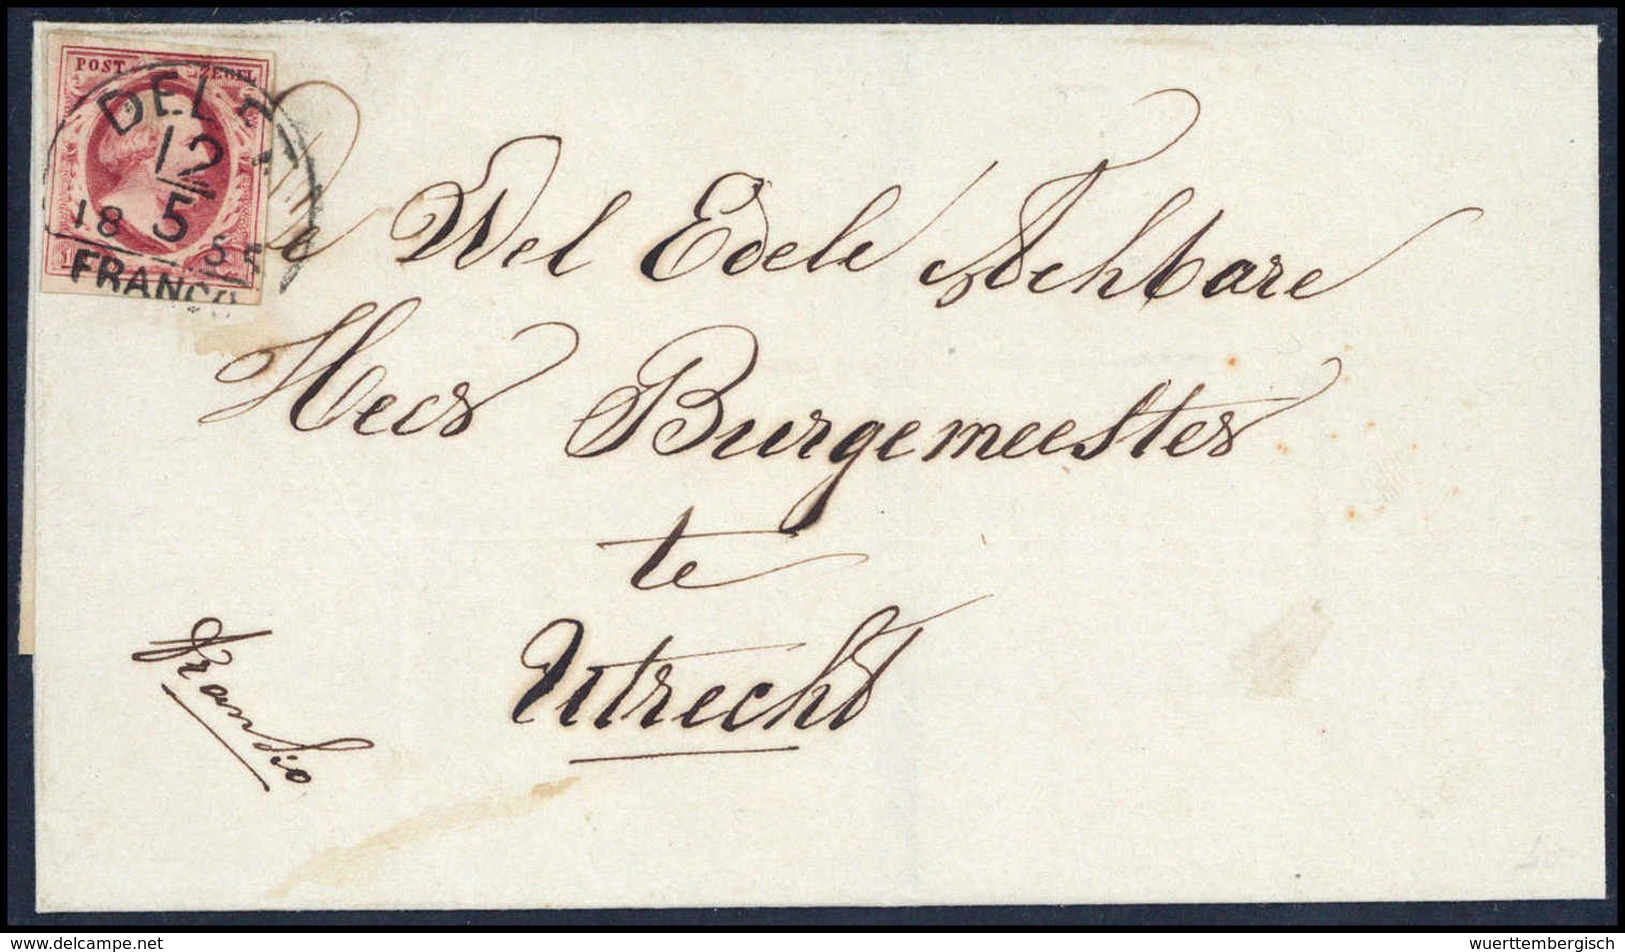 POST ZEGEL
DEL
12
5
18 5
FRANCO
De
Wel Edele Achtbare
Heer Burgemeester
te
Utrecht
Franko
wuerttembergisch